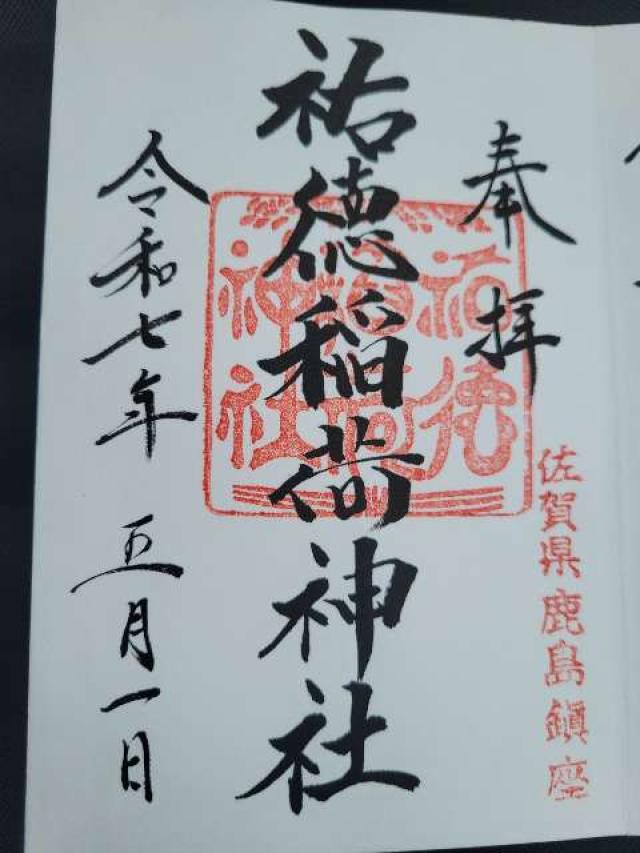 奉拝
佐賀県鹿島鎮座
祐徳稲荷神社
祐徳稲荷神社
令和七年 五月一日